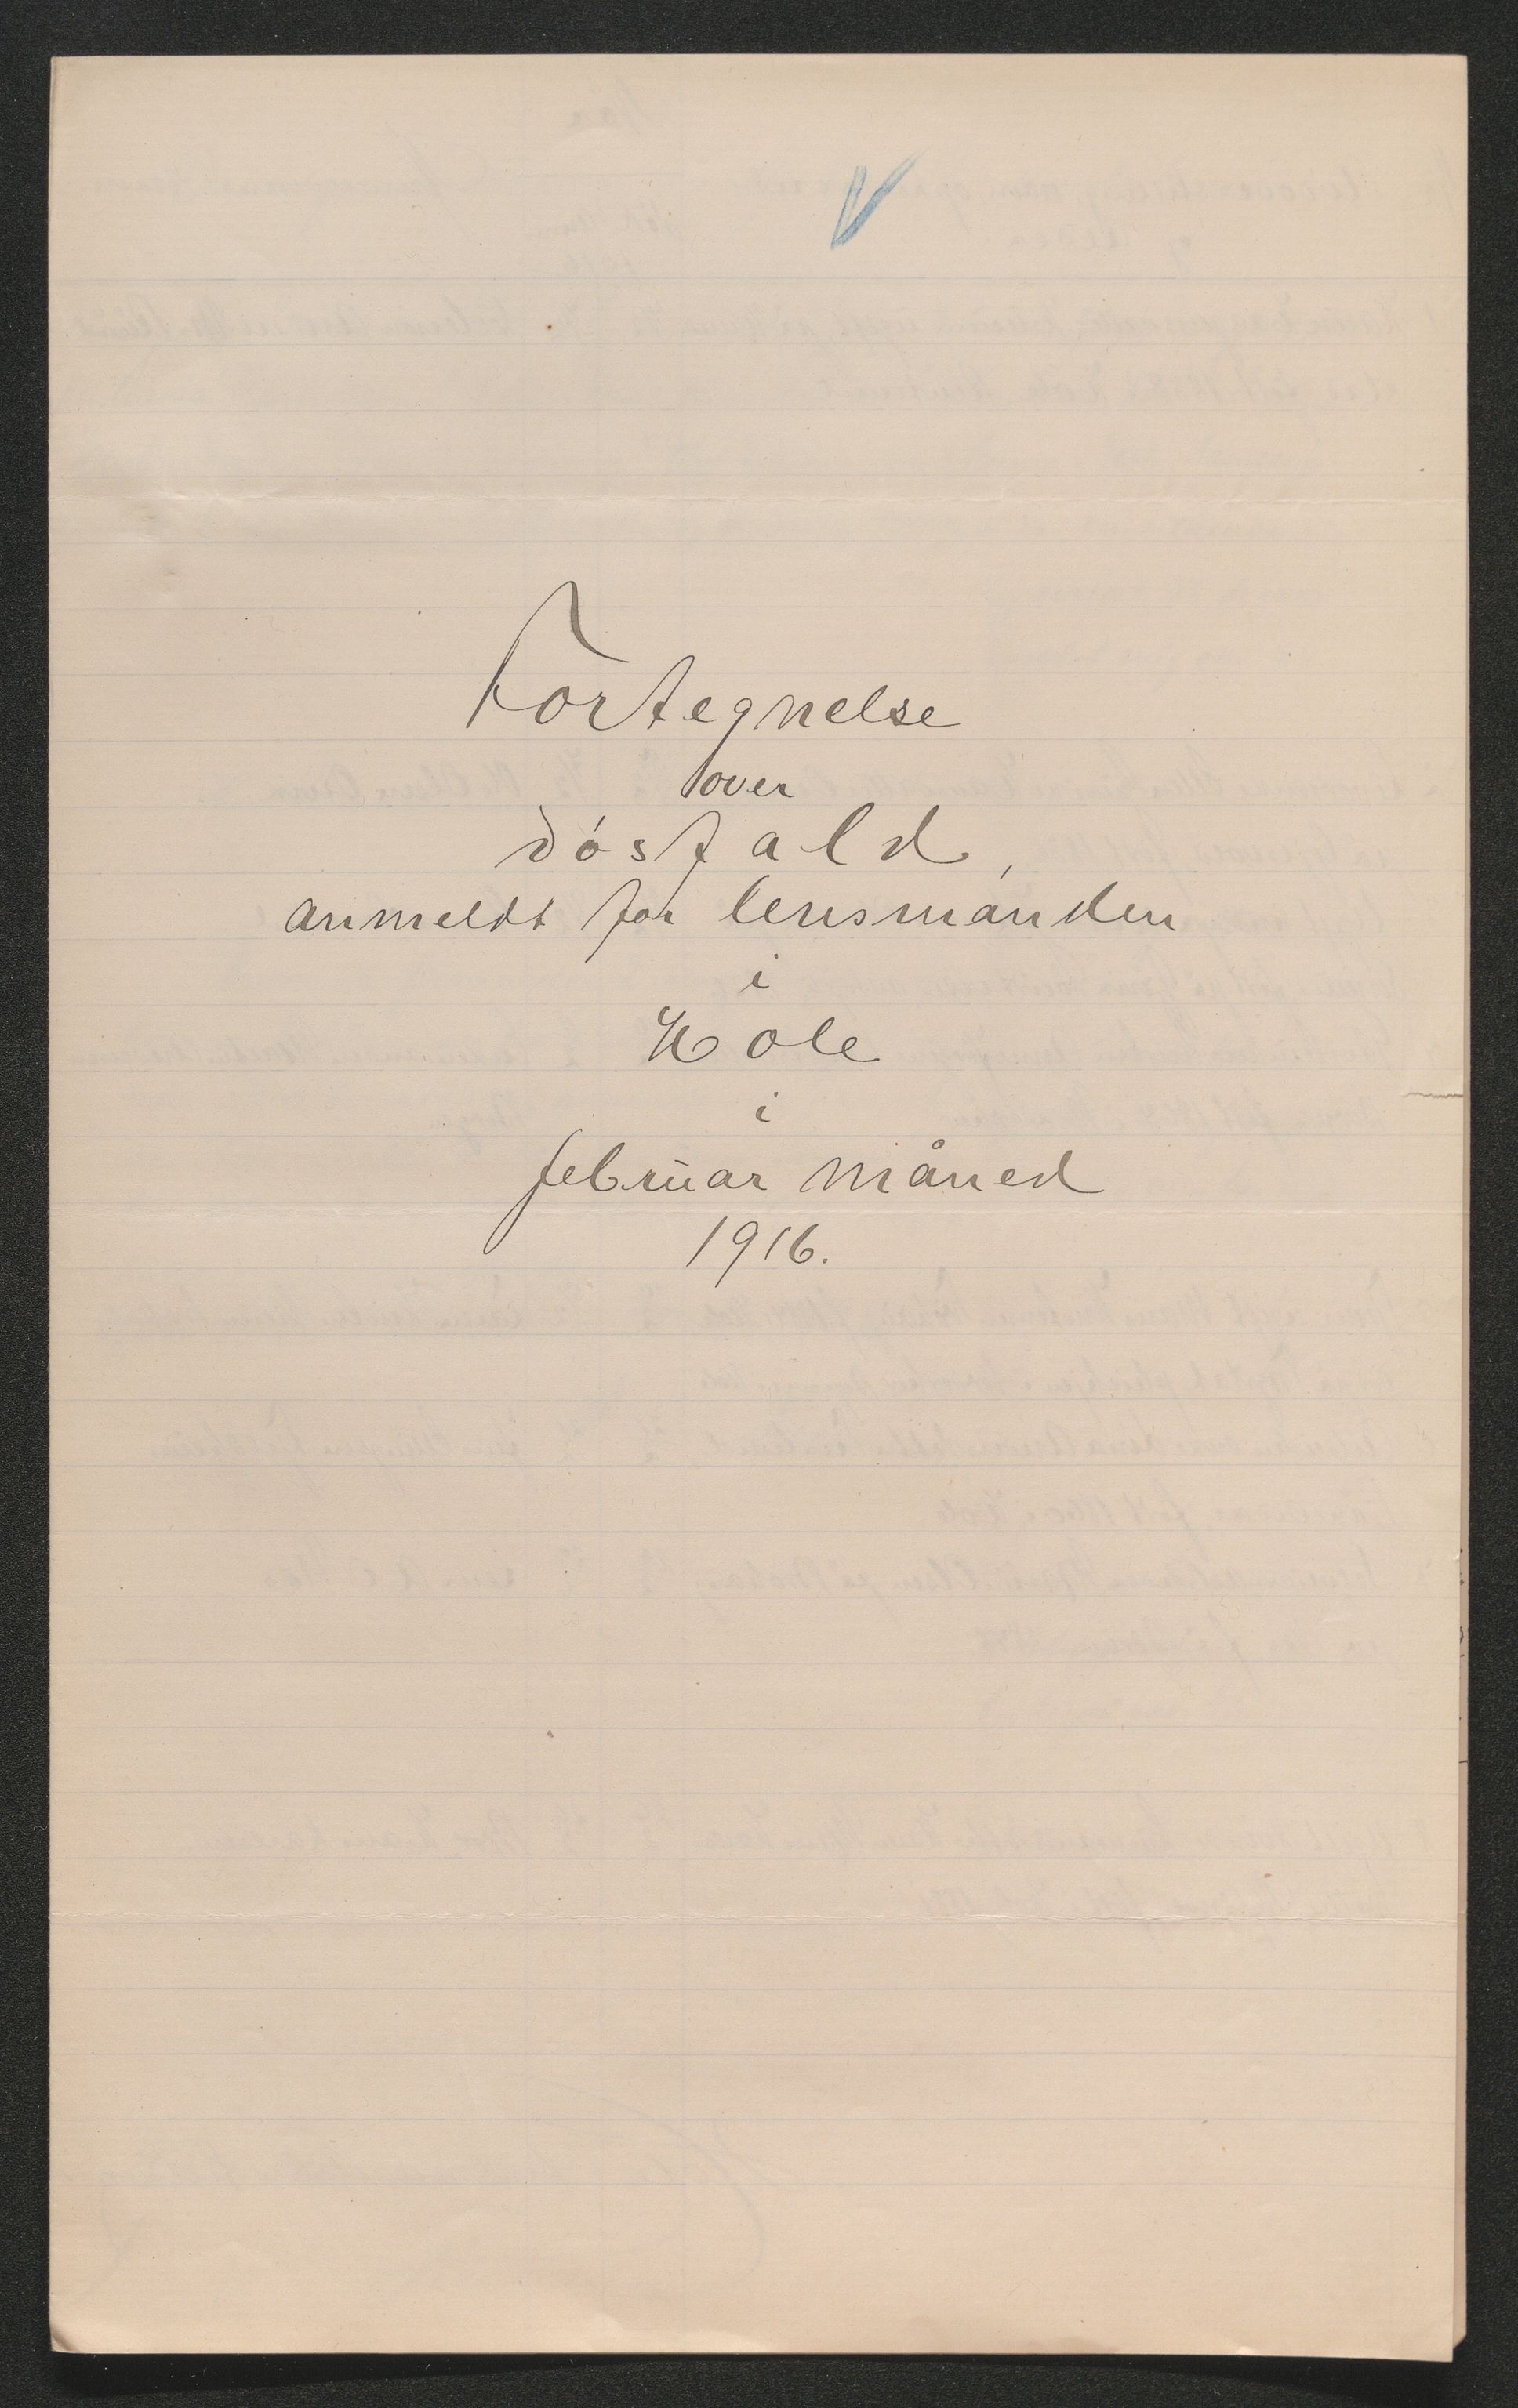 Fortegnelse
over
dösfald,
anmeldt for lensmanden
i
Hole
i
februar måned
1916.